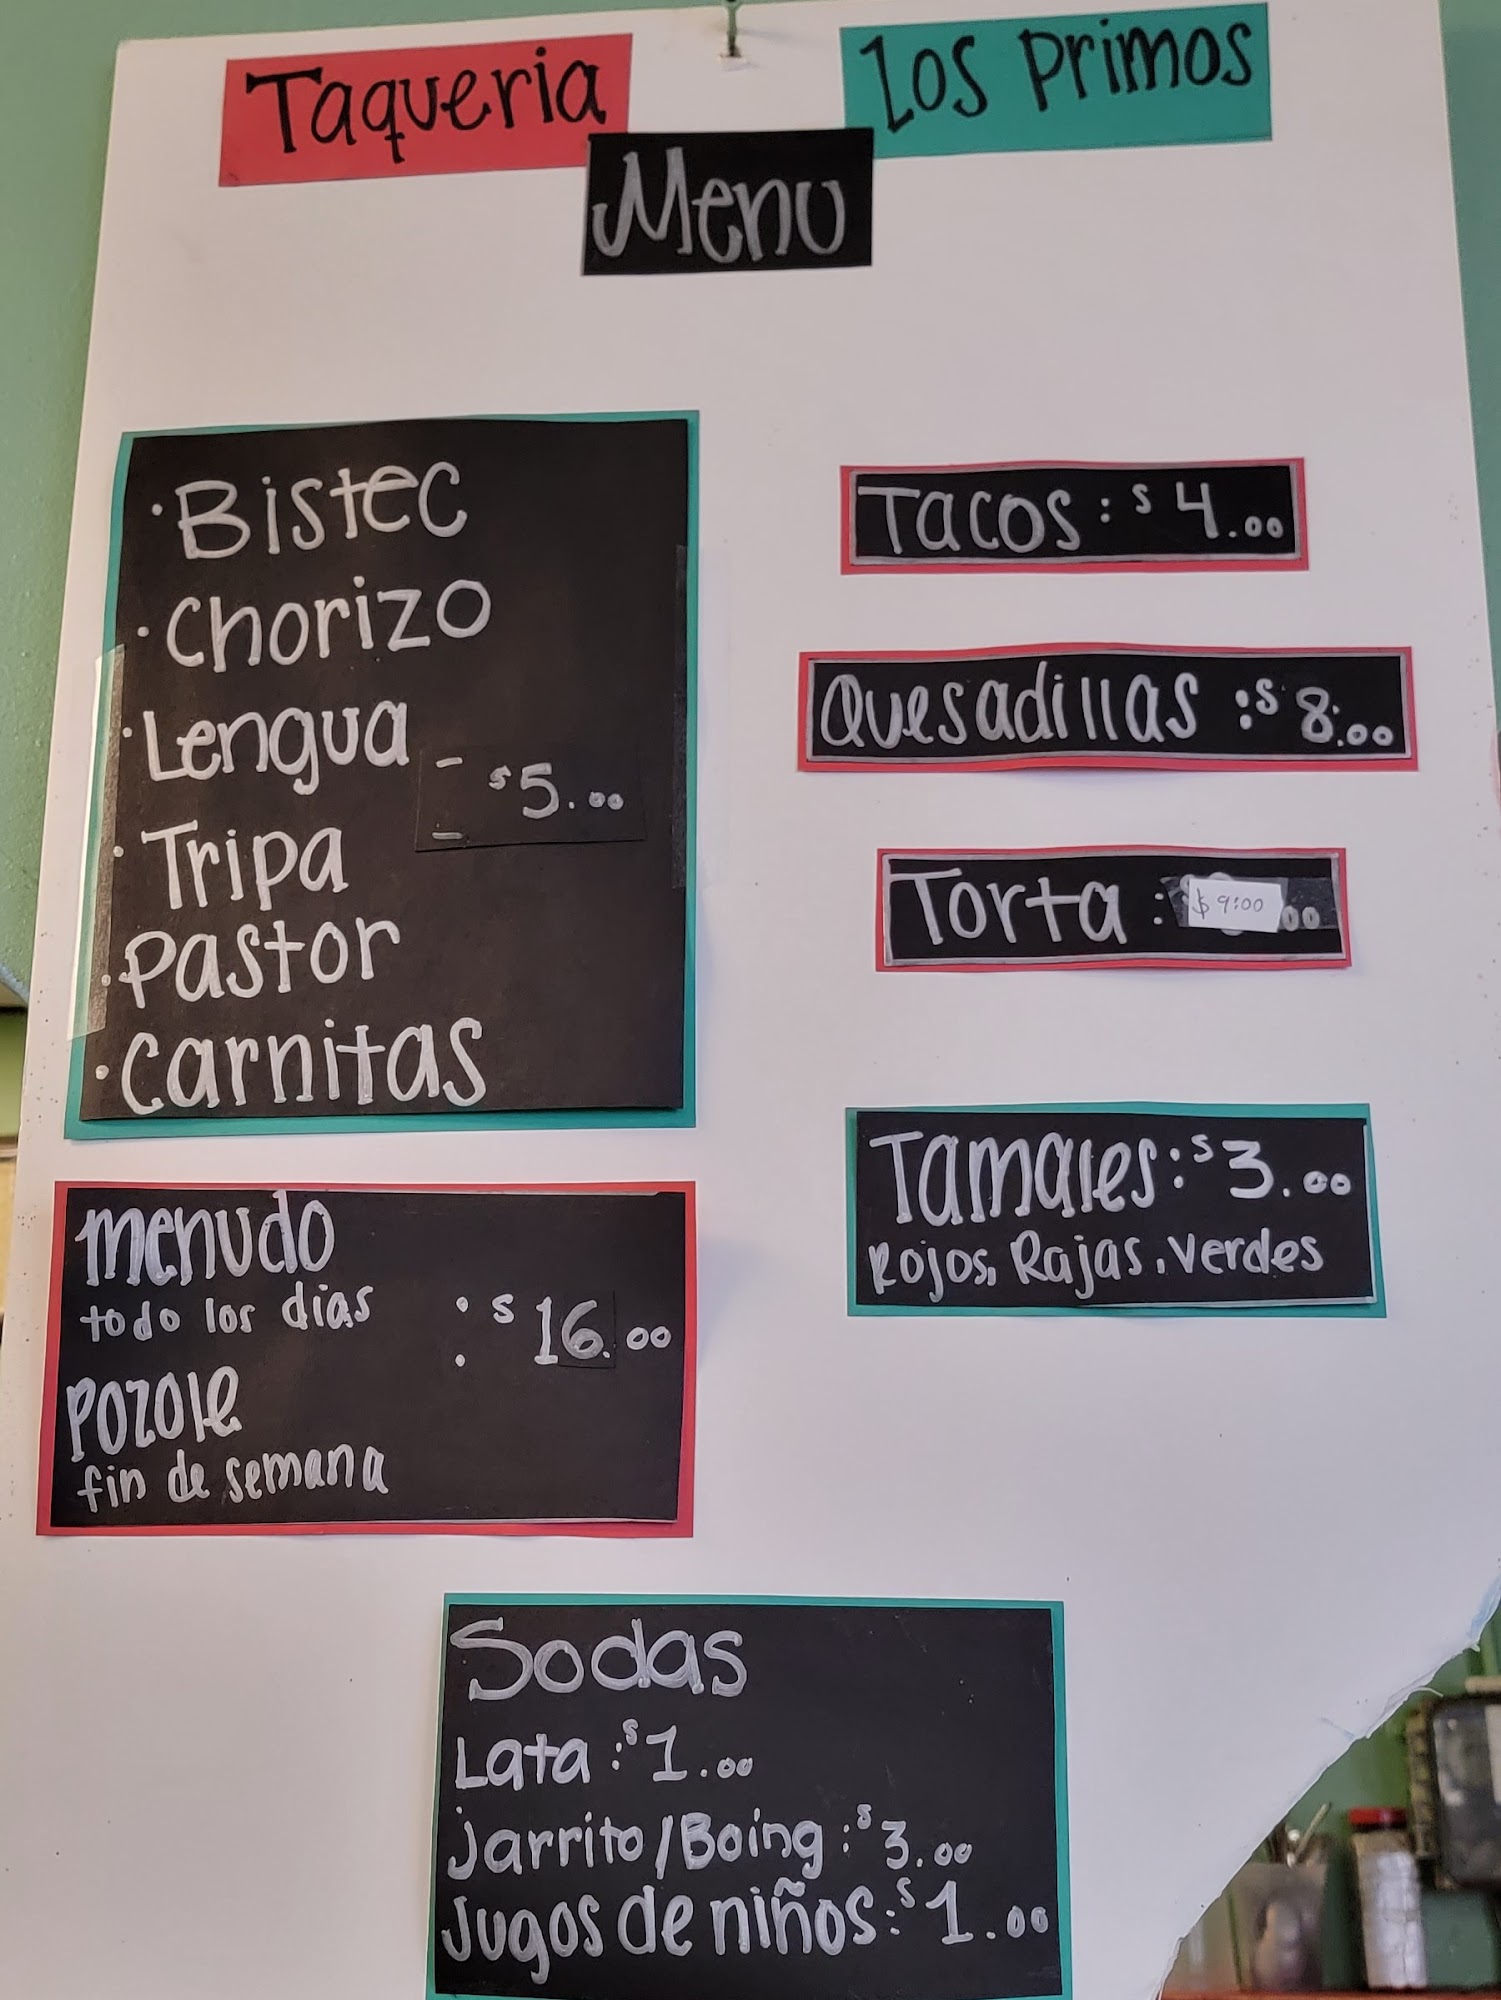 Taqueria Los Primos
Menu
· Bistec
· Chorizo
· Lengua - $5.00
· Tripa -
· Pastor
· Carnitas
Tacos : $4.00
Quesadillas : $8.00
Torta : $9:00 .00
Tamales : $3.00
Rojos, Rajas, Verdes
menudo
todo los dias : $16.00
Pozole :
fin de semana
Sodas
Lata : $1.00
Jarrito/Boing : $3.00
Jugos de niños : $1.00